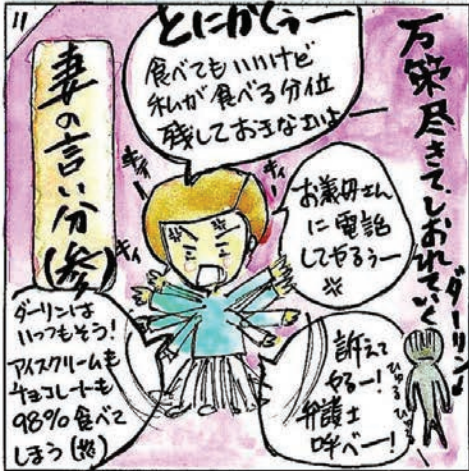 11
万策尽きて、しおれていく
ダーリン↓
とにかくぅー
食べてもいいけど
私が食べる分位
残しておきなさいよ
妻の言い分(参)
キィー
キィー
キィ
お義母さん
に電話
してやるぅー
ダーリンは
いっつもそう!
アイスクリームも
チョコレートも
98%食べて
しまう(怒)
訴えて
やるー!
弁護士
呼べー!
ひゅるひゅる